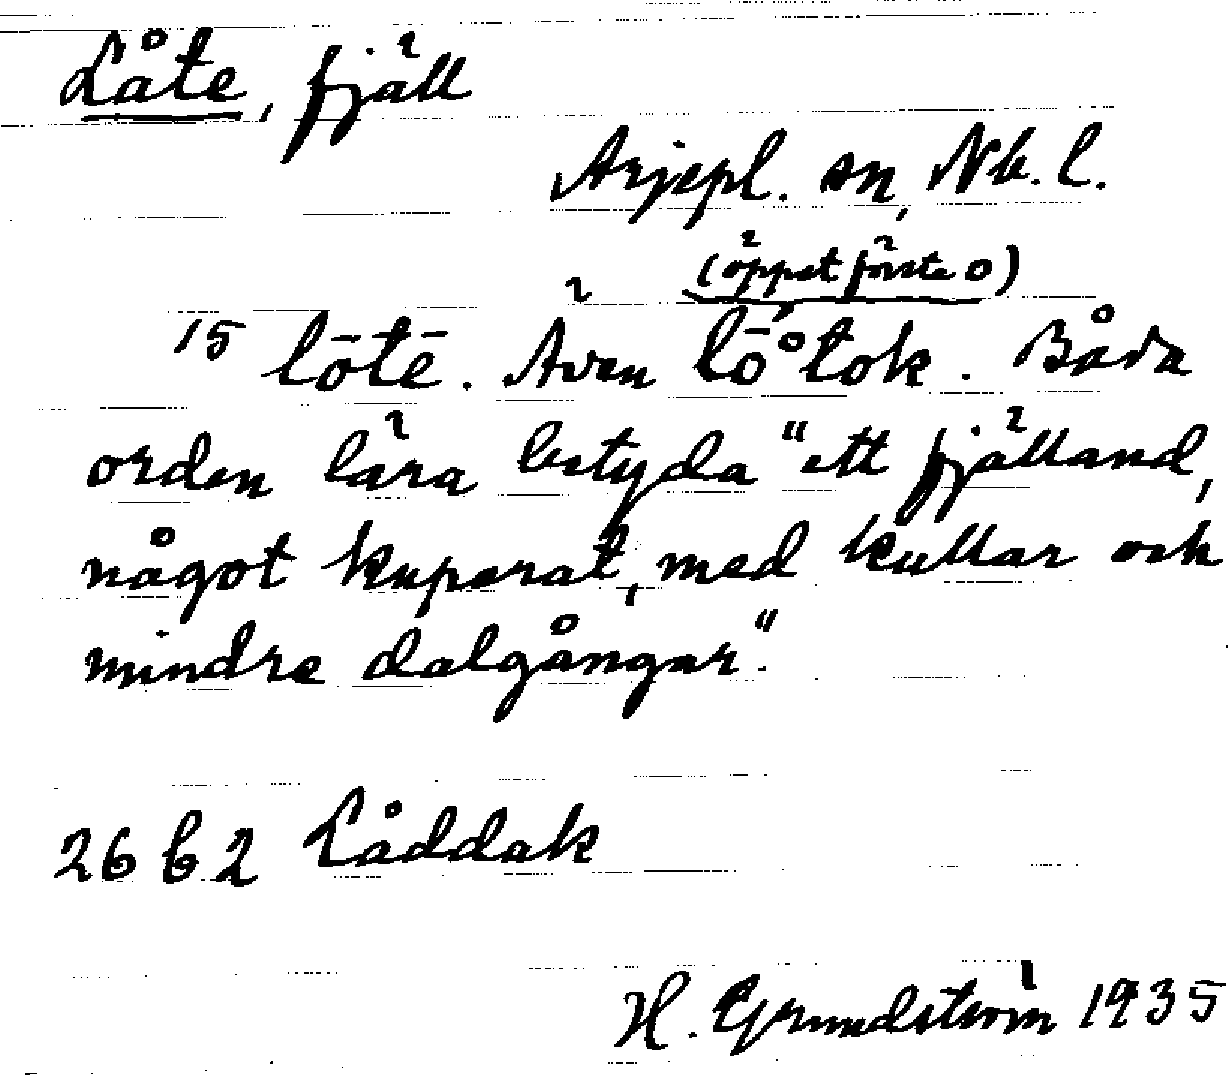 Låte, fjäll
Arjepl. sn, Nb. l.
(öppet första o)
15 lōtē. Även lō̊tok. Båda
orden lära betyda "ett fjälland,
något kuperat, med kullar och
mindre dalgångar".
26 b 2 Låddak
H. Grundström 1935